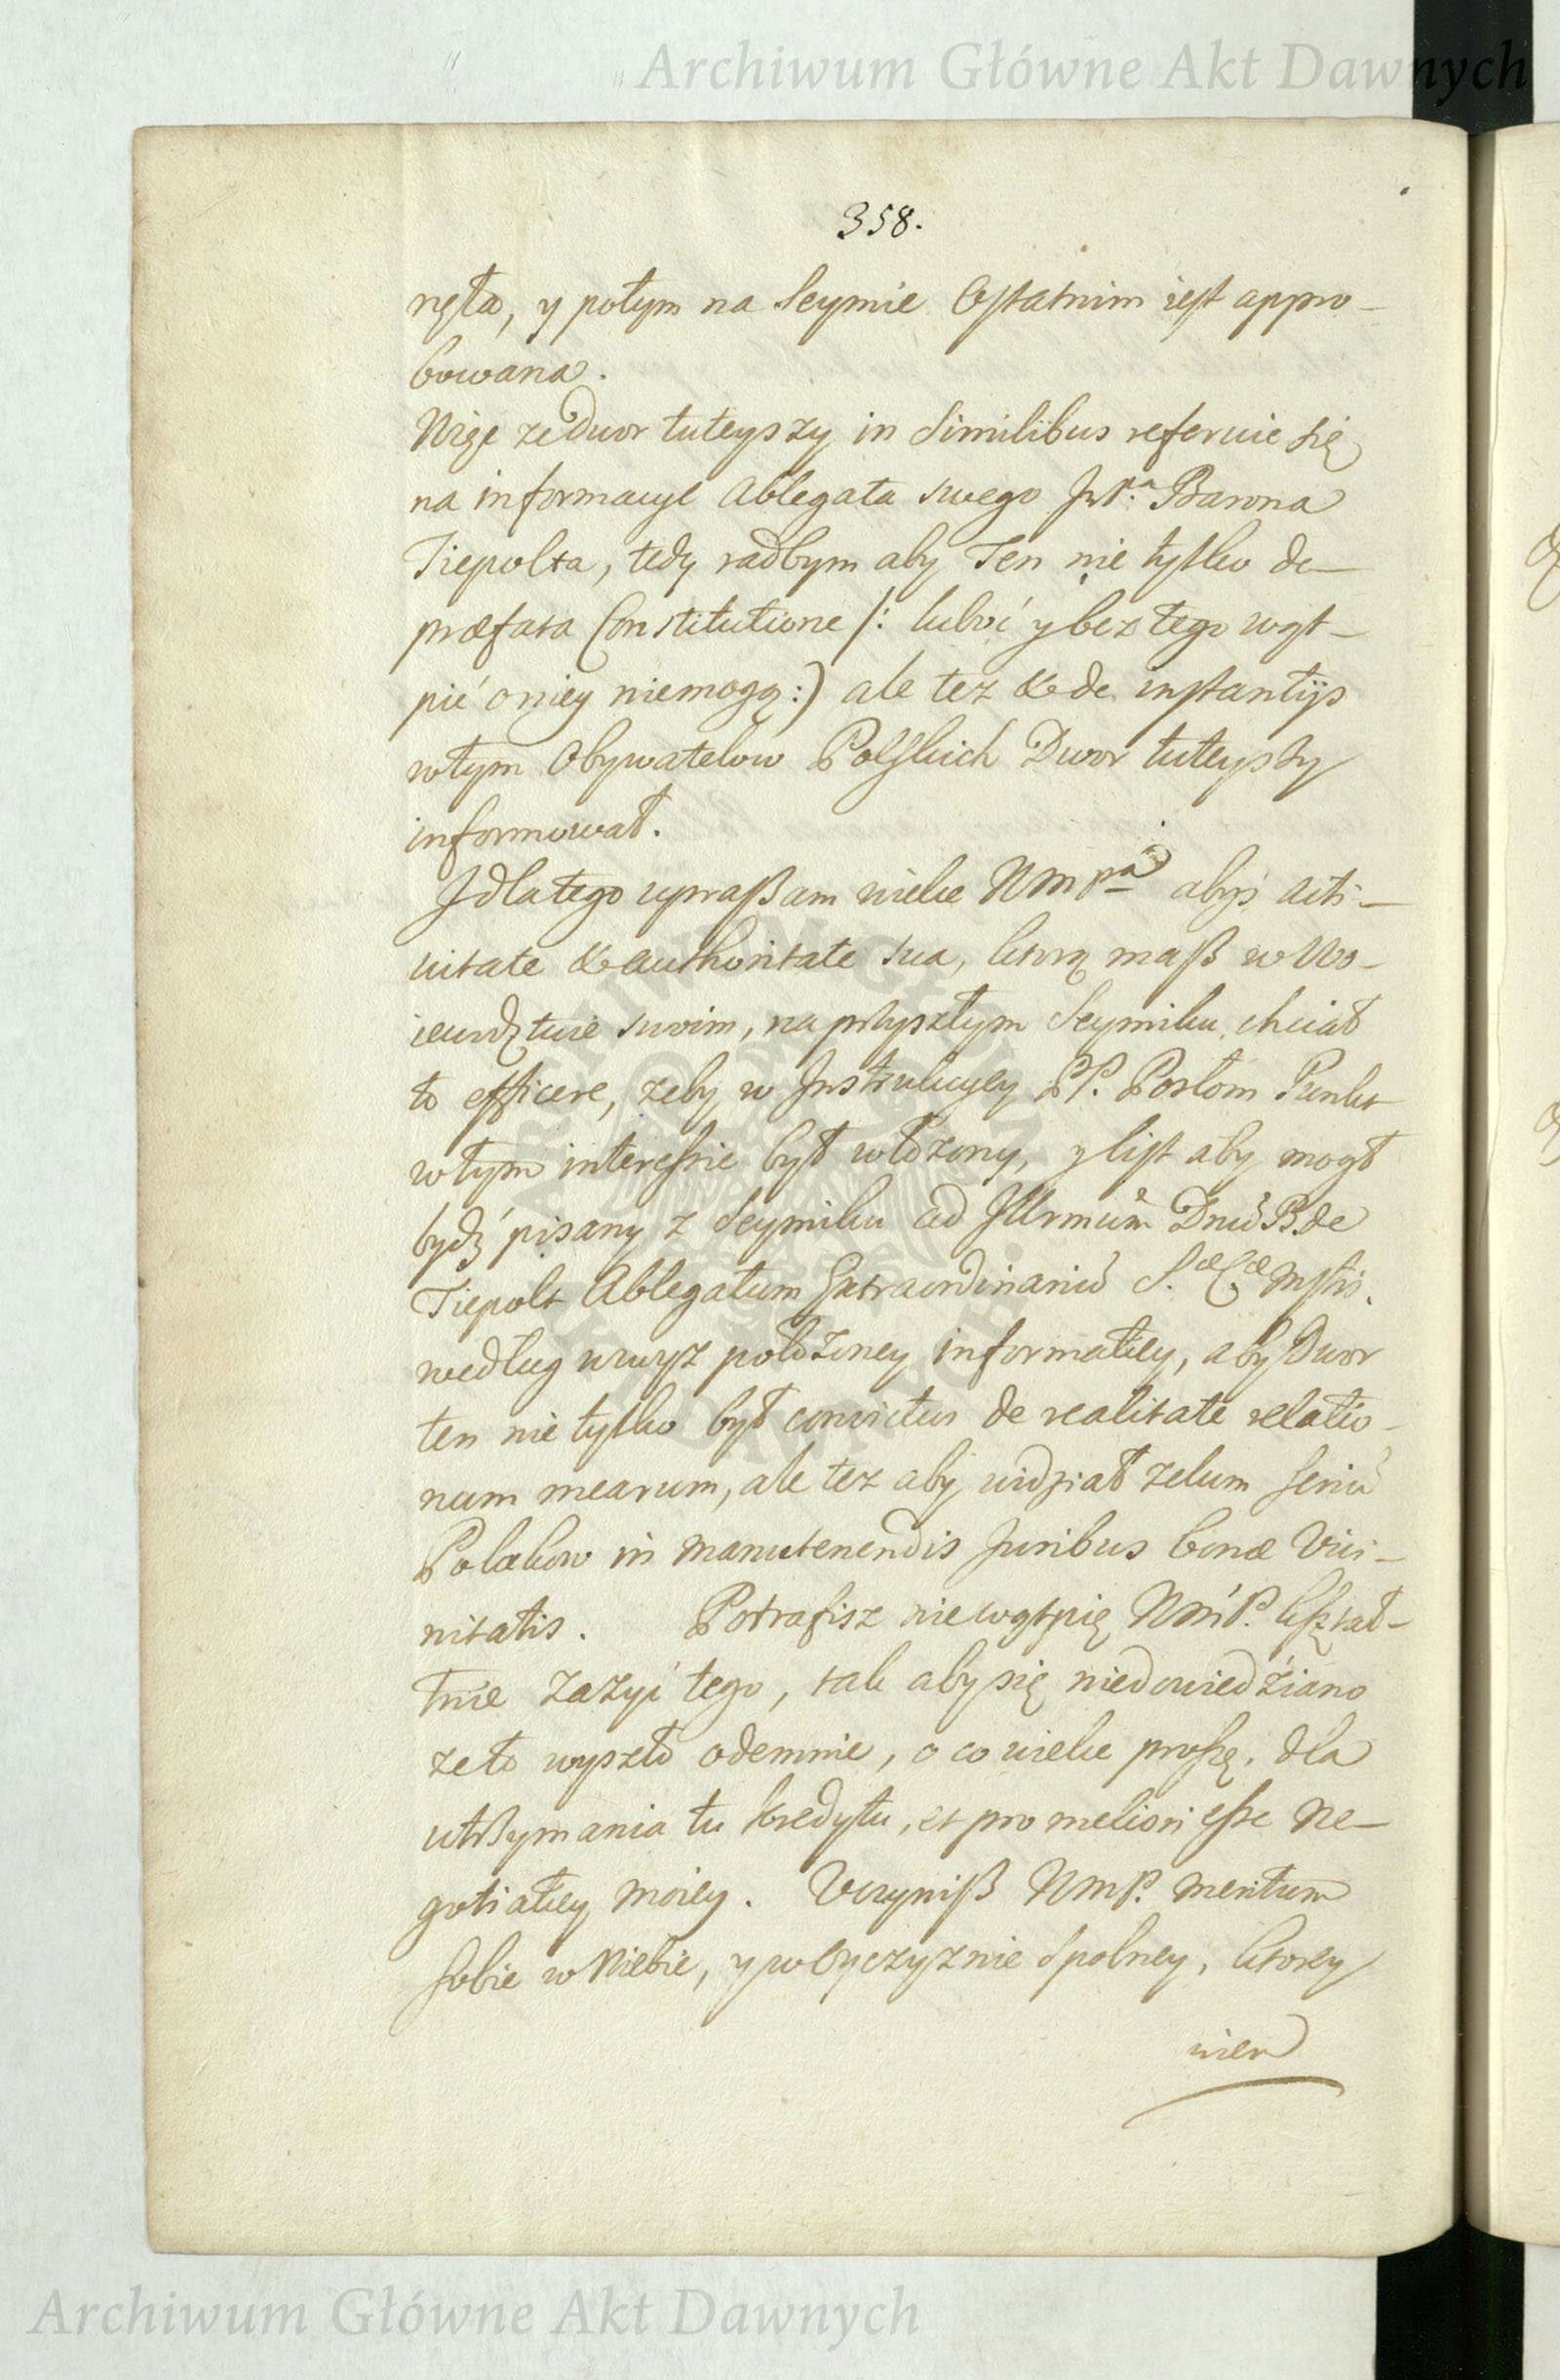 Archiwum Główne Akt Dawnych
358.
nęła, y potym na Seymie Ostatnim iest appro-
bowana.
Więc ze Dwor tuteyszy in Similibus referuie się
na informacye Ablegata swego JxP.a Barona
Tiepolta, tedy radbym aby Ten nie tylko de
præfata Constitutione /: luboć y bez tego wąt-
pić oniey niemogą :) ale tez & de instantijs
wtym Obywatelow Polskich Dwor tuteyszy
informował.
Jdlatego upraßam wielce WmPa abyś acti-
uitate & authoritate sua, ktorą maß w Wo-
iewodztwie swoim, na przyszłym Seymiku chciał
to efficere, zeby w Jnstrukcyey PP. Posłom Punkt
wtym interessie był włozony, y list aby mogł
bydź pisany z Seymiku ad Jllrmum Dnū B. de
Tiepolt Ablegatum Extraordinariū S.æ C.æ Mstis.
według wwyz połozoney informatiey, aby Dwor
ten nie tylko był convictus de realitate relatio-
num mearum, ale tez aby widział zelum seriū
Polakow in manutenendis Juribus bonæ Vici-
nitatis. Potrafisz niewątpię WmP. kształ-
tnie zazyć tego, tak aby się niedowiedziano
ze to wyszło odemnie, o co wielce proszę, dla
utrzymania tu kredytu, et pro meliori esse Ne-
gotiatiey moiey. Vczyniß WmP. meritum
sobie w Niebie, y w Oyczyznie Spolney, ktorey
wien
Archiwum Główne Akt Dawnych